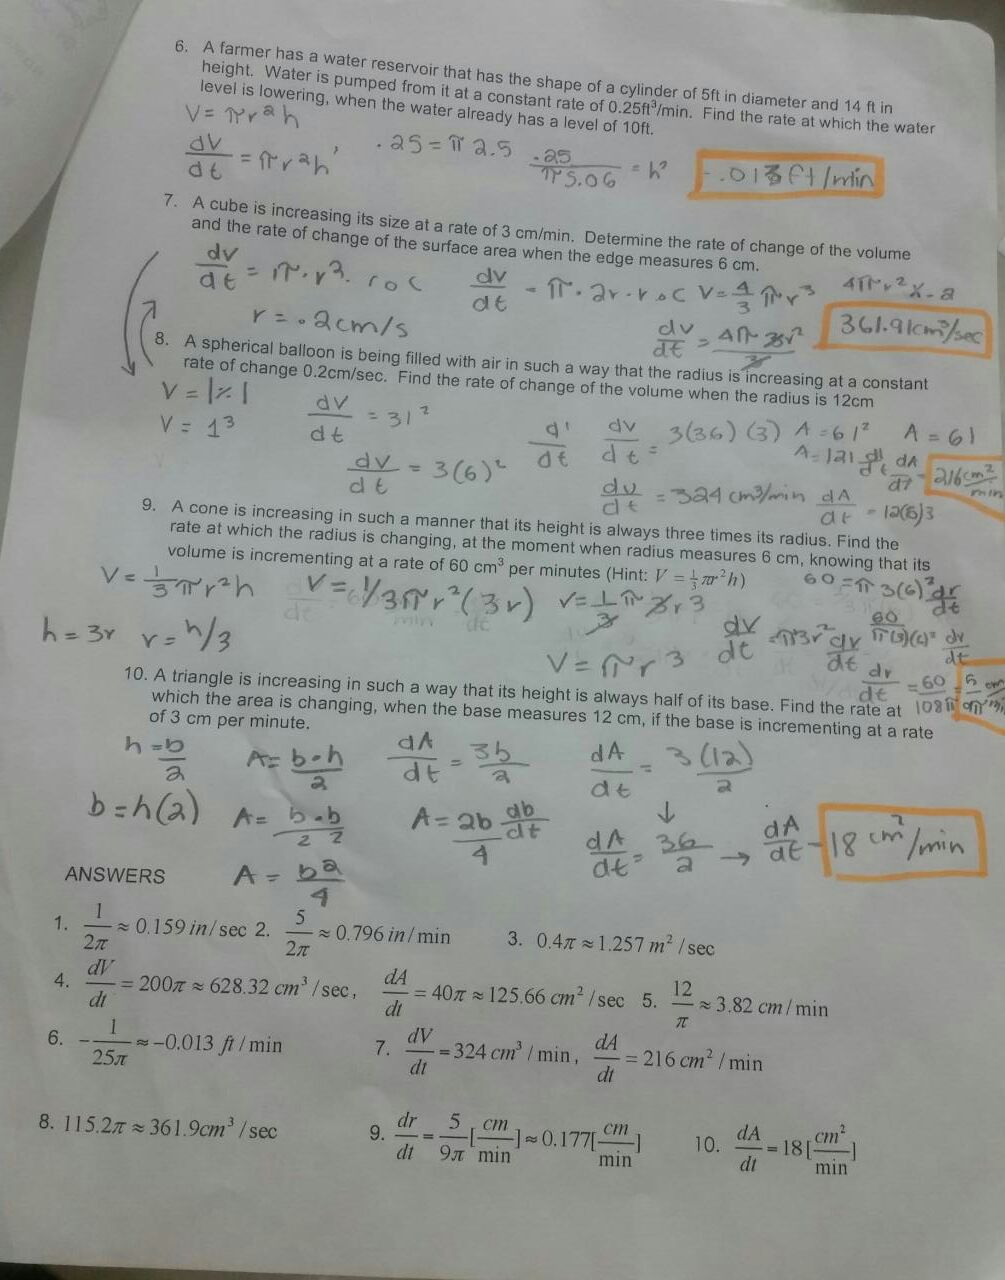 6. A farmer has a water reservoir that has the shape of a cylinder of 5ft in diameter and 14 ft in
height. Water is pumped from it at a constant rate of 0.25ft³/min. Find the rate at which the water
level is lowering, when the water already has a level of 10ft.
V = πr²h
dV/dt = πr²h' .25 = π 2.5 .25/π5.06 = h' -.013 ft/min
7. A cube is increasing its size at a rate of 3 cm/min. Determine the rate of change of the volume
and the rate of change of the surface area when the edge measures 6 cm.
dv/dt = π.r². roc dv/dt = π.2r.roc V=4/3 πr³ 4πr² x.2
r = .2cm/s dv/dt = 4π 3r²/3 361.91cm³/sec
8. A spherical balloon is being filled with air in such a way that the radius is increasing at a constant
rate of change 0.2cm/sec. Find the rate of change of the volume when the radius is 12cm
V = l·l·l
V = l³ dv/dt = 3l² dv/dt = 3(36)(3) A = 6l² A = 6l
dv/dt = 3(6)² A = 12l dl/dt dA/dt = 216cm²/min
dv/dt = 324 cm³/min dA/dt = 12(6)3
9. A cone is increasing in such a manner that its height is always three times its radius. Find the
rate at which the radius is changing, at the moment when radius measures 6 cm, knowing that its
volume is incrementing at a rate of 60 cm³ per minutes (Hint: V = 1/3 πr²h)
V = 1/3 πr²h V = 1/3πr²(3r) V = 1/3 π 3r³ 60 = π3(6)² dr/dt
h = 3r r = h/3 V = πr³ dv/dt = π3r² dr/dt 60/π(3)(6)² dr/dt
dr/dt = 60/108π = 5/9π cm/min
10. A triangle is increasing in such a way that its height is always half of its base. Find the rate at
which the area is changing, when the base measures 12 cm, if the base is incrementing at a rate
of 3 cm per minute.
h = b/2 A = b·h/2 dA/dt = 3b/2 dA/dt = 3(12)/2
b = h(2) A = b·b/2 2 A = 2b/4 db/dt dA/dt = 36/2 → dA/dt = 18 cm²/min
A = b²/4
ANSWERS
1. 1/2π ≈ 0.159 in/sec 2. 5/2π ≈ 0.796 in/min 3. 0.4π ≈ 1.257 m²/sec
4. dV/dt = 200π ≈ 628.32 cm³/sec, dA/dt = 40π ≈ 125.66 cm²/sec 5. 12/π ≈ 3.82 cm/min
6. -1/25π ≈ -0.013 ft/min 7. dV/dt = 324 cm³/min, dA/dt = 216 cm²/min
8. 115.2π ≈ 361.9cm³/sec 9. dr/dt = 5/9π [cm/min] ≈ 0.177[cm/min] 10. dA/dt = 18[cm²/min]